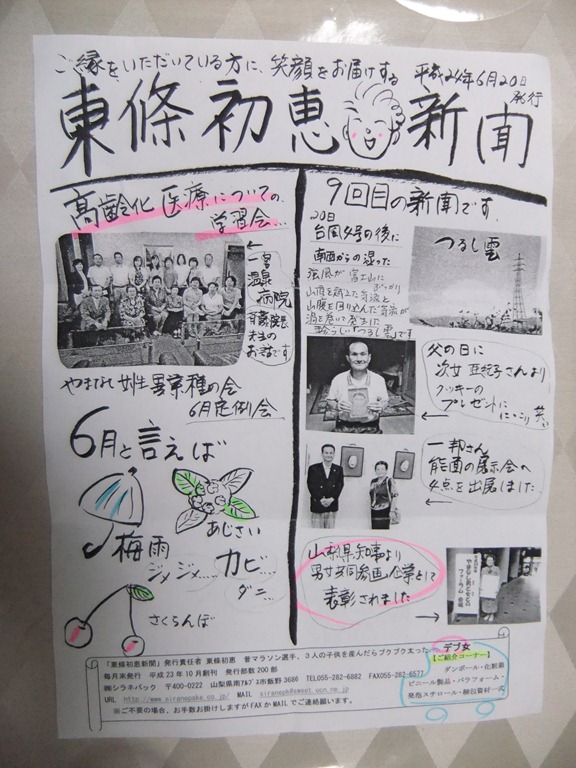 ご縁をいただいている方に、笑顔をお届けする
平成24年6月20日
発行
東條初恵新聞
高齢化医療についての
学習会...
←
一宮
温泉
病院
院長
先生の
お話です
やまなし女性異業種の会
6月定例会
6月と言えば
あじさい
梅雨
ジメジメ....
カビ...
ダニ...
さくらんぼ
9回目の新聞です。
20日
台風4号の後に
南西からの湿った
強風が富士山に
ぶつかり
山腹を回り込んだ気流が
渦を巻いて発生した
珍らしい"つるし雲"です
つるし雲
父の日に
次女 亜紀子さんより
クッキーの
プレゼントに
にっこり 笑
一邦さん
能面の展示会へ
4点を出展しました。
山梨県知事より
男女共同参画企業として
表彰されました
「東條初恵新聞」発行責任者 東條初恵 昔マラソン選手、3人の子供を産んだらブクブク太った デブ女
毎月末発行 平成23年10月創刊 発行部数200部
㈱シラネパック 〒400-0222 山梨県南アルプス市飯野3686 TEL055-282-6882 FAX055-282-6577
URL http://www.siranepake.co.jp/ MAIL siranepk@sweet.ocn.ne.jp
※ご不要の場合、お手数お掛けしますがFAXかMAILでご連絡願います。
【ご紹介コーナー】
ダンボール・化粧箱
ビニール製品・パラフォーム・
発泡スチロール・梱包資材一式